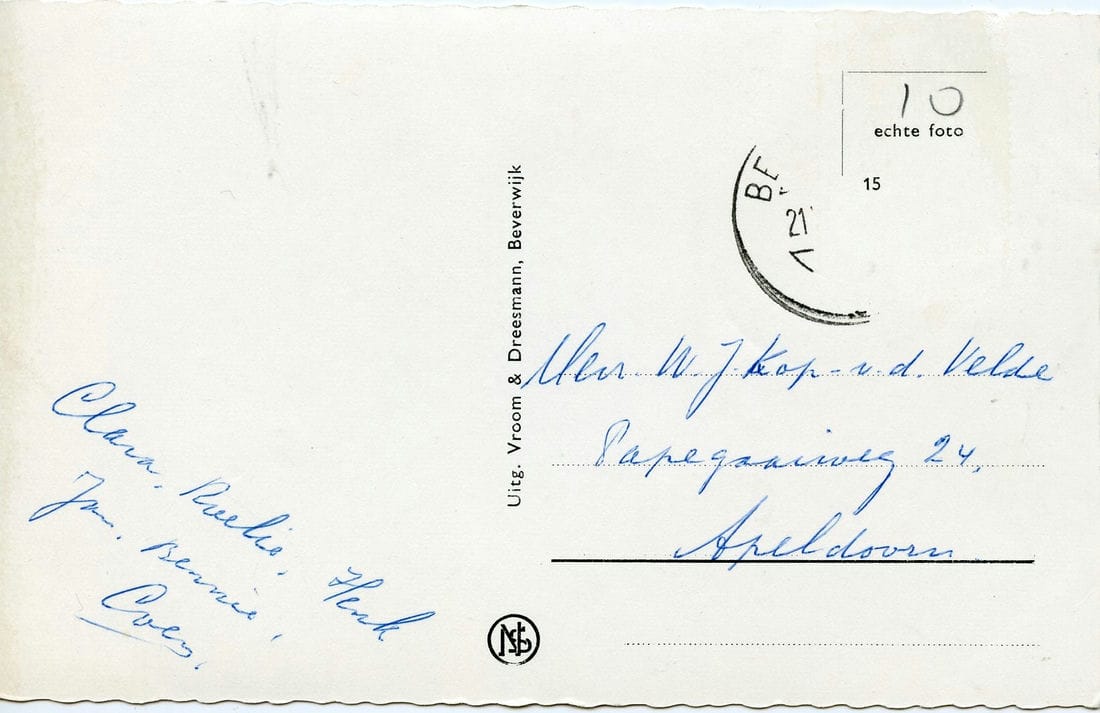 Clara, Roelie, Henk
Jan, Bennie,
Coen,
Uitg. Vroom & Dreesmann, Beverwijk
10
echte foto
15
BE
21
Mevr. W. J. Kop - v. d. Velde
Papegaaiweg 24,
Apeldoorn.